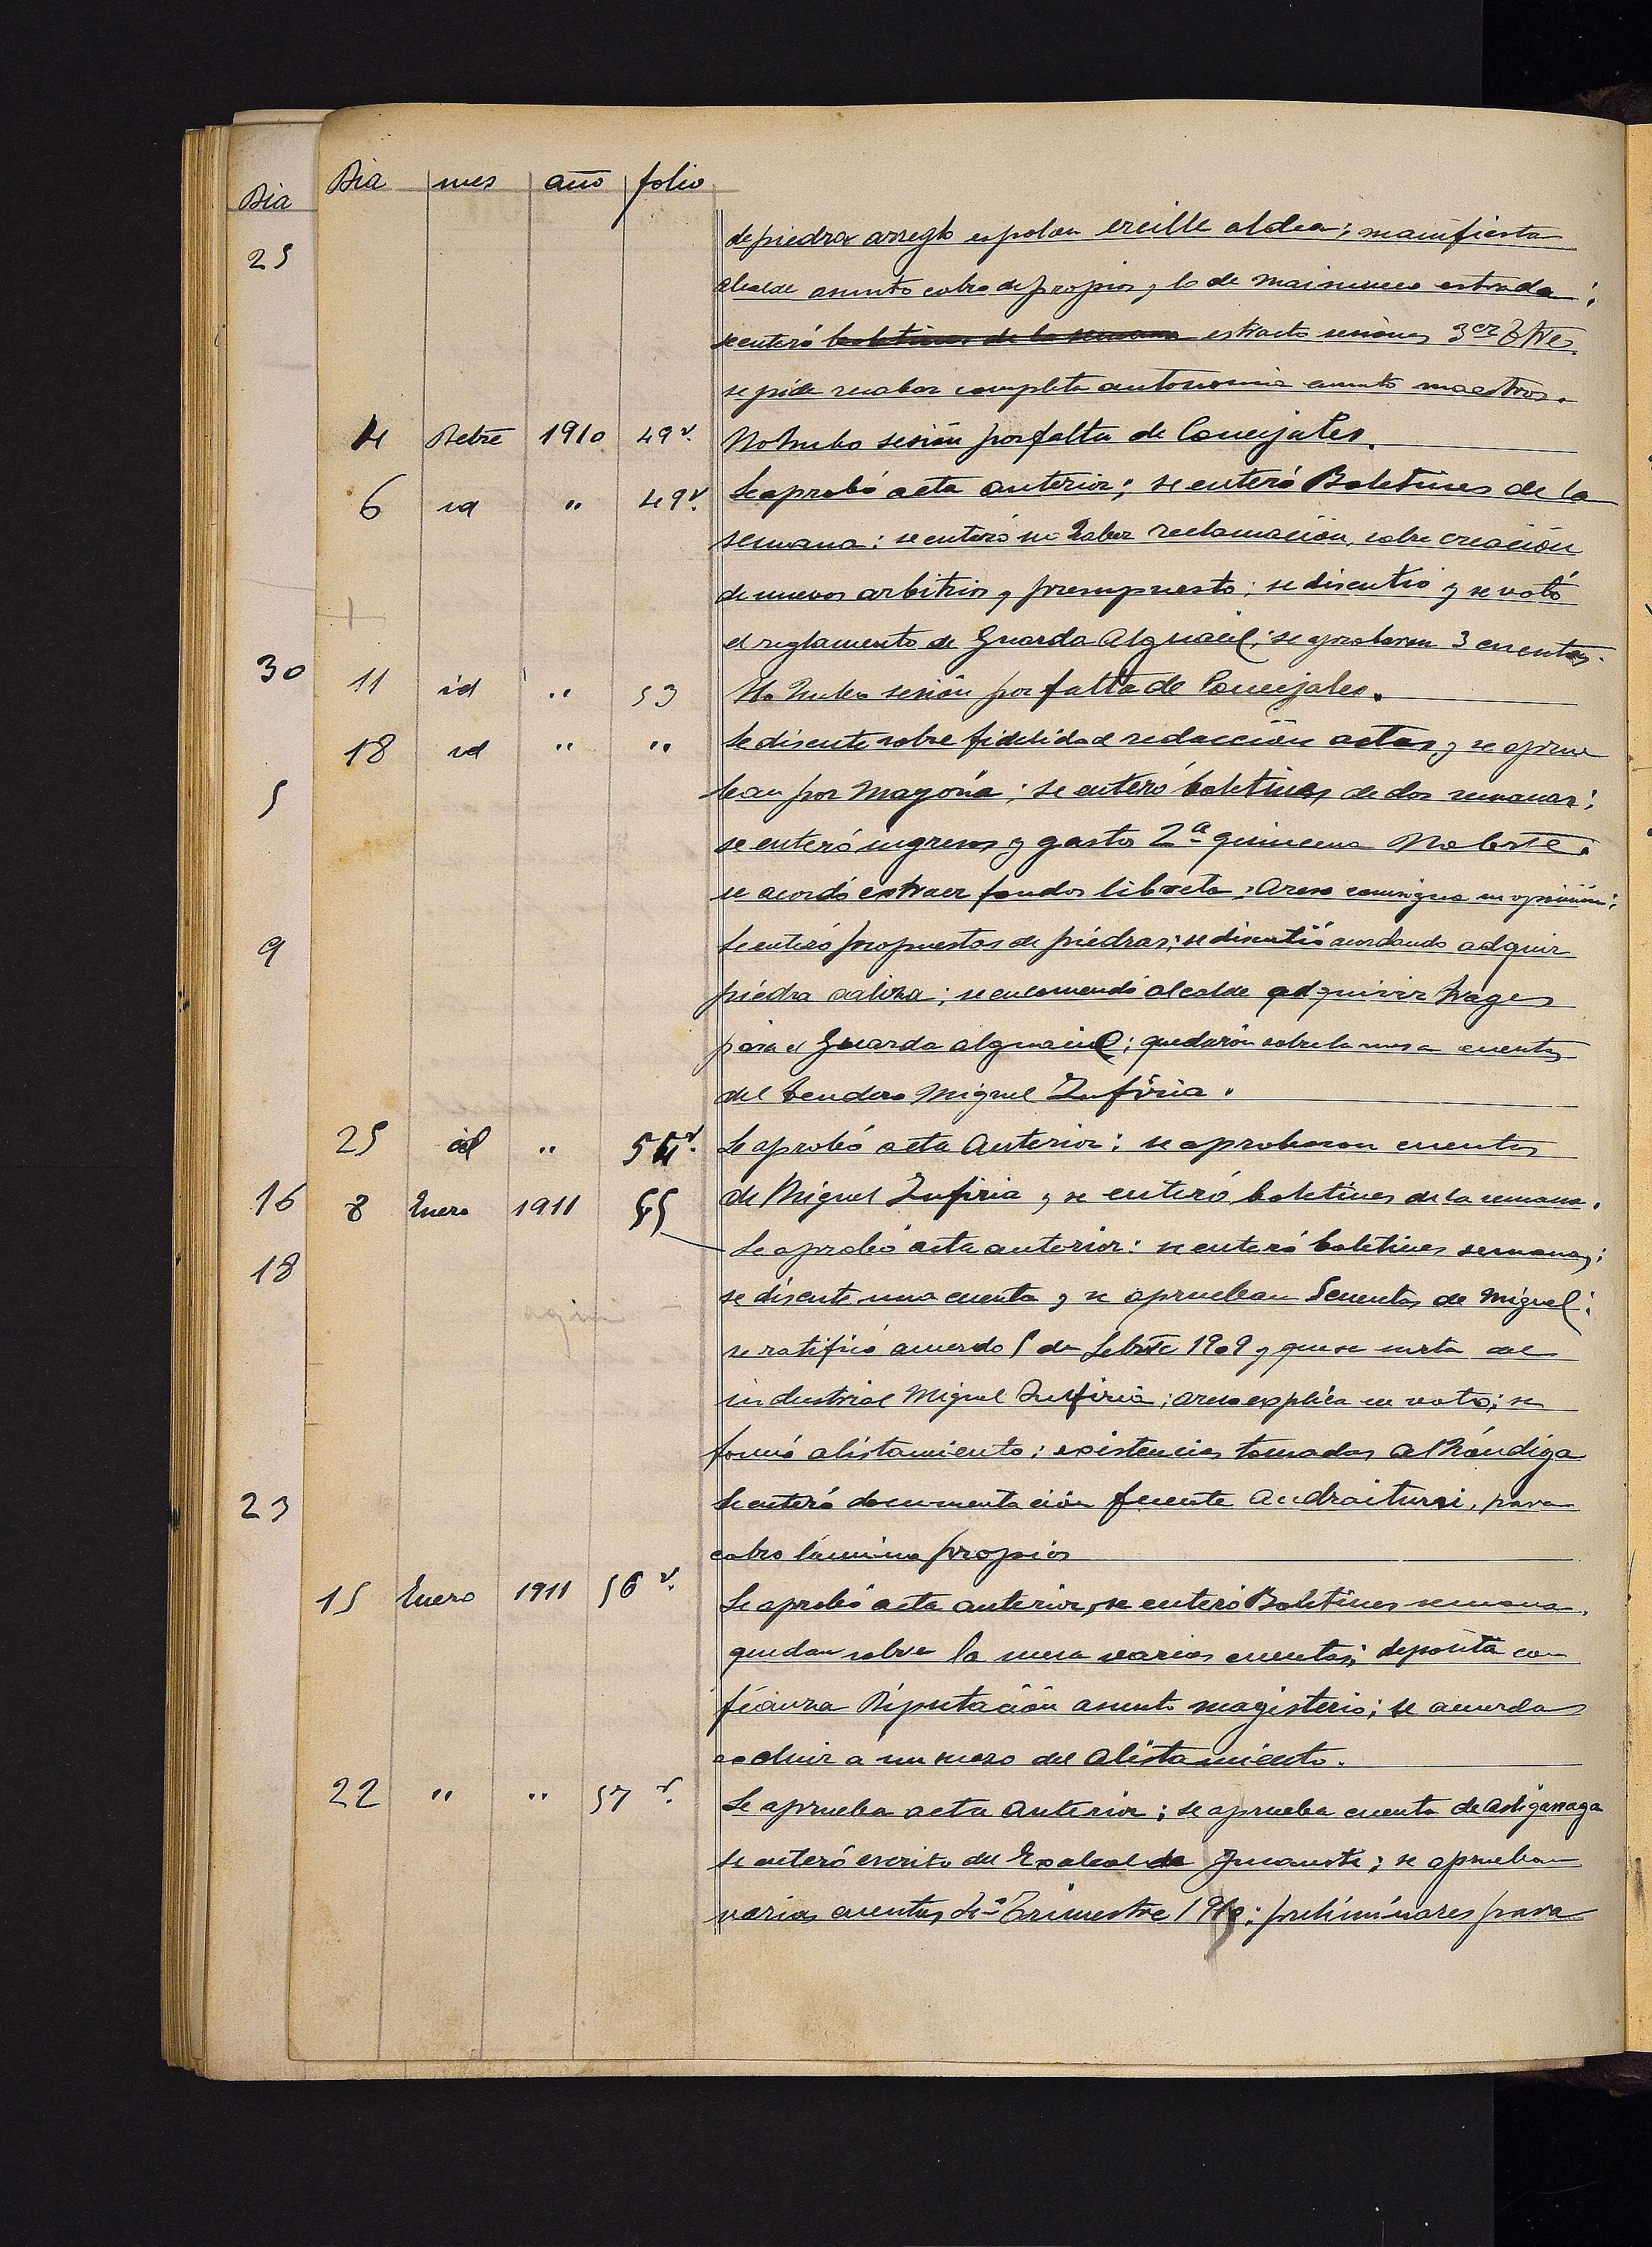 Dia mes año folio
Dia
25
de piedra arreglo espolon ereille aldea; manifiesta
alcalde asunto cobro de propios y lo de estrada;
se enteró boletines de la semana extracto sesiones 3er Trtre.
se pide recabar completa autonomia asunto maestros.
4 Dcbre 1910 49v. No hubo sesión por falta de Concejales.
6 id " 49v. Se aprobó acta anterior; se enteró Boletines de la
semana: se enteró no haber reclamación, sobre creación
de nuevos arbitrios y presupuesto; se discutió y se votó
el reglamento de Guarda Alguacil; se aprobaron 3 cuentas.
30
11 id " 53 No hubo sesión por falta de Concejales.
18 id " " Se discute sobre fidelidad redacción actas y se aprue
5
ban por Mayoria; se enteró boletines de dos semanas;
se enteró ingresos y gastos 2ª quincena Nobre.
se acordó extraer fondos libreta; Areso consigna su opinión;
9
Se enteró propuestas de piedras; se discutió acordando adquir
piedra caliza; se encomendó alcalde adquirir trages
para el Guarda alguacil; quedaron sobre la mesa cuentas
del tendero Miguel Zufiria.
25 id " 54v. Se aprobó acta Anterior; se aprobaron cuentas
16
de Miguel Zufiria y se enteró boletines de la semana.
8 Enero 1911 55
Se aprobó acta anterior: se enteró boletines semana;
18
se discute una cuenta y se aprueban 5 cuentas de Miguel;
se ratificó acuerdo 5 de Febre 1909 y que se surta del
industrial Miguel Zufiria; Areso explica su voto; se
formó alistamiento; existencias tomadas Alhóndiga
23
Se enteró documentación fuente Andraiturri, para
cobro lámina propios
15 Enero 1911 56v. Se aprobó acta anterior, se enteró Boletines semana.
quedan sobre la mesa varias cuentas; deposita con
fianza Diputación asunto magisterio; se acuerda
excluir a un mozo del Alistamiento.
22 " " 57v. Se aprueba acta Anterior; se aprueba cuenta de Astigarraga
Se enteró escrito del Exalcalde; se aprueban
varias cuentas 4º Trimestre 1910; preliminares para